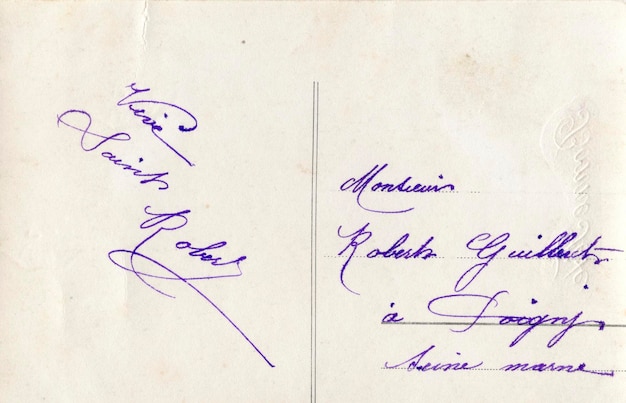 Vive
Saint
Robert
Monsieur
Robert Guillert
à
Seine marne